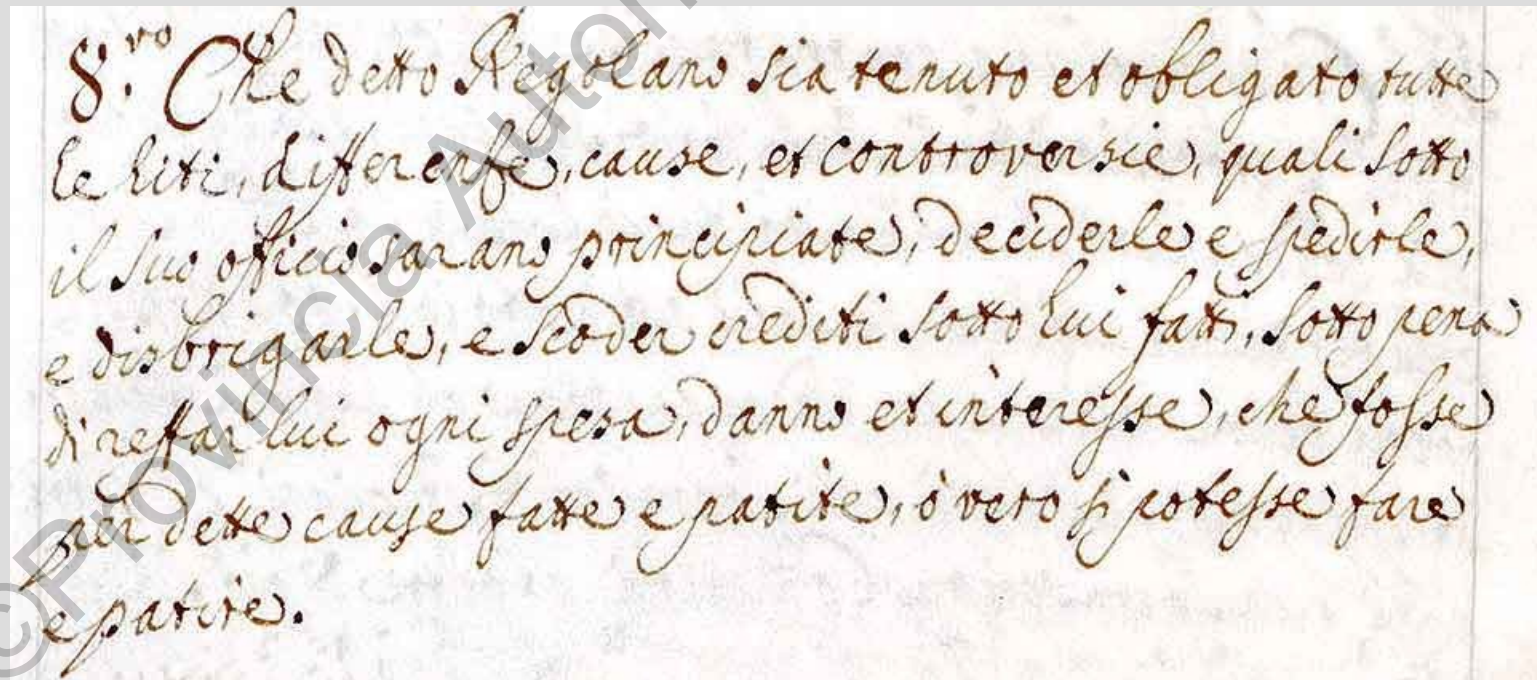 8.vo Che detto Regolano sia tenuto et obligato tutte
le liti, differense, cause, et controversie, quali sotto
il suo officio sarano principiate, deciderle e spedirle,
e disbrigarle, e scoder crediti sotto lui fatti, sotto pena
di reffar lui ogni spesa, danno et interesse, che fosse
per dette cause fatte e patite, ò vero si potesse fare
e patire.
©Provincia Auton